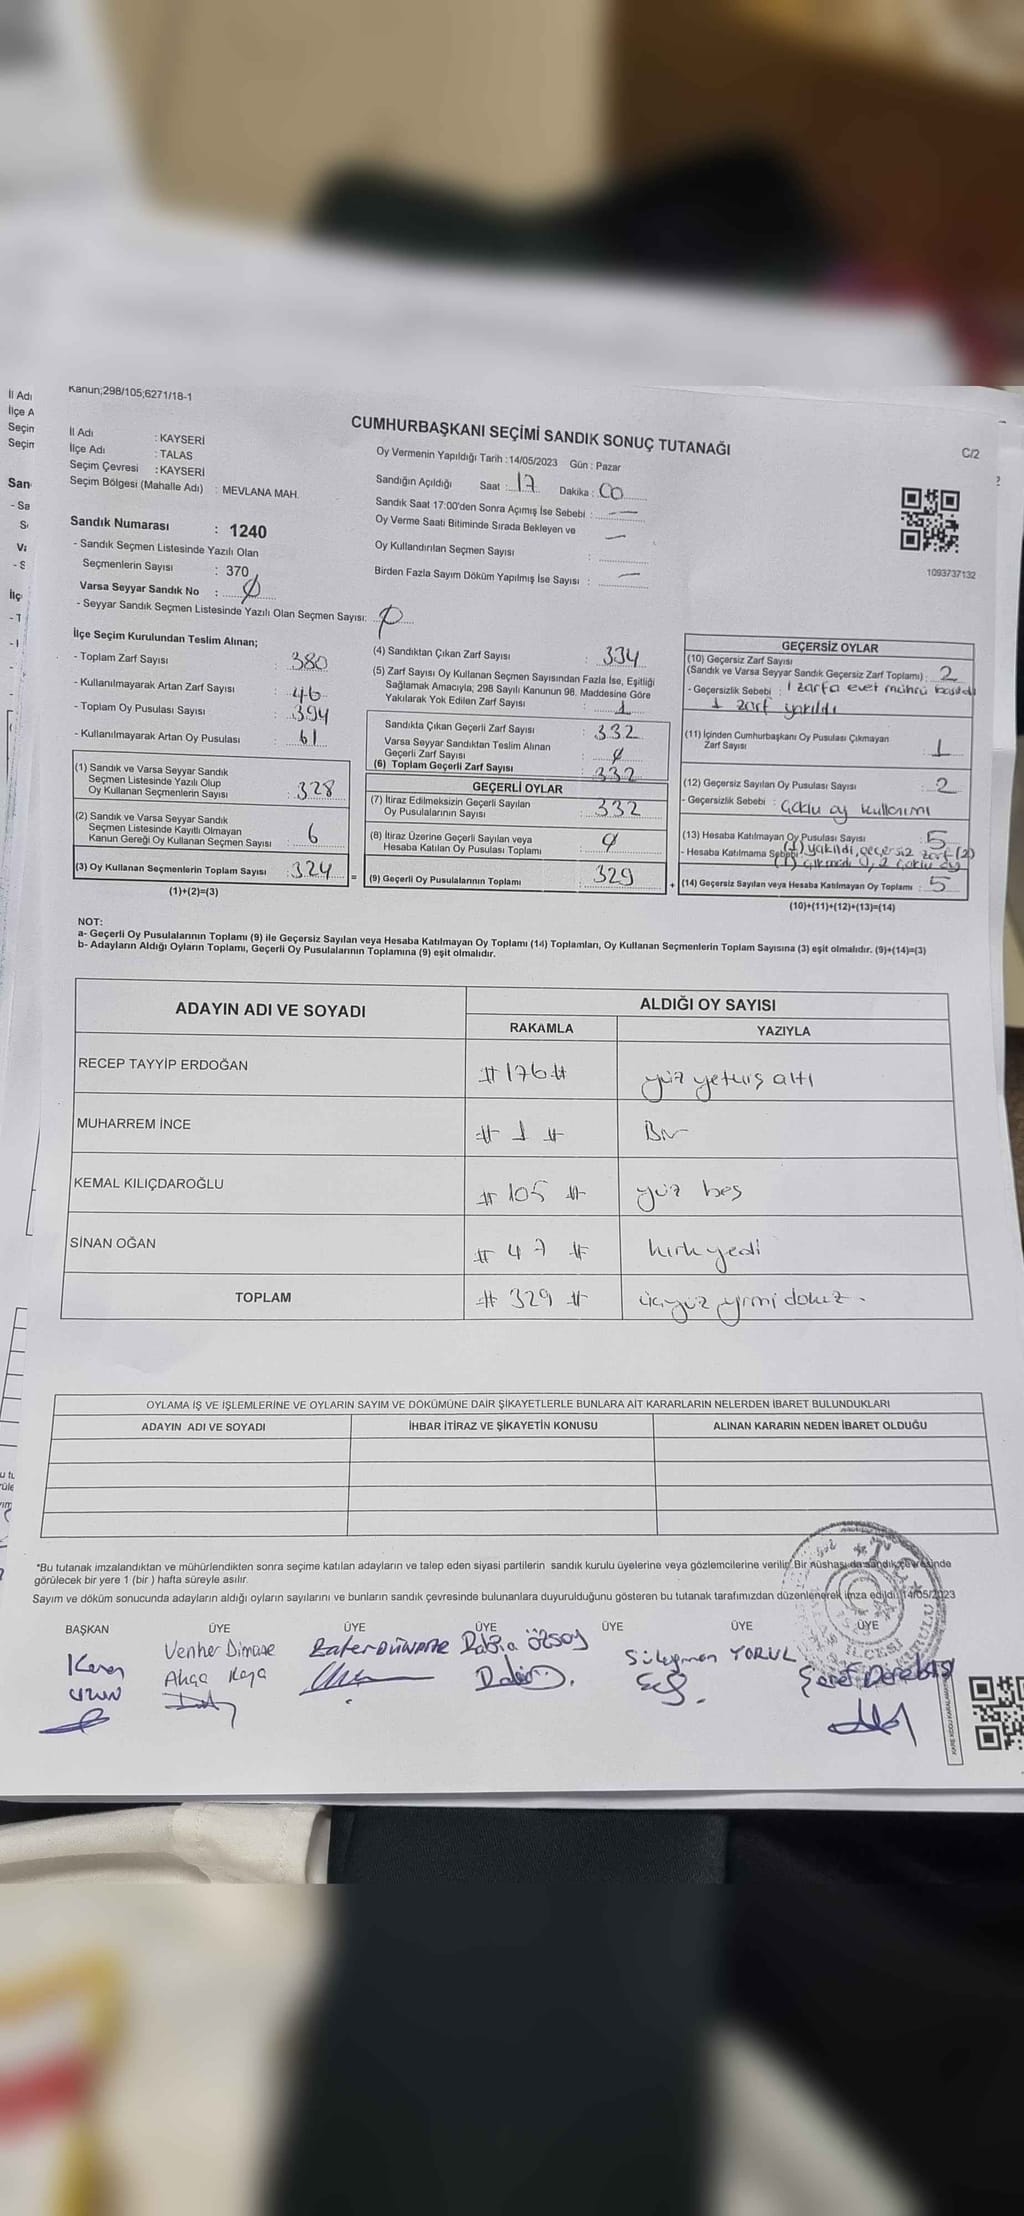 Kanun;298/105;6271/18-1
CUMHURBAŞKANI SEÇİMİ SANDIK SONUÇ TUTANAĞI
C/2
İl Adı : KAYSERİ
İlçe Adı : TALAS
Seçim Çevresi : KAYSERİ
Seçim Bölgesi (Mahalle Adı) : MEVLANA MAH.
Sandık Numarası : 1240
- Sandık Seçmen Listesinde Yazılı Olan
Seçmenlerin Sayısı : 370
Varsa Seyyar Sandık No : Ø
- Seyyar Sandık Seçmen Listesinde Yazılı Olan Seçmen Sayısı: Ø
Oy Vermenin Yapıldığı Tarih :14/05/2023 Gün : Pazar
Sandığın Açıldığı Saat : 17 Dakika : 00
Sandık Saat 17:00'den Sonra Açımış İse Sebebi : —
Oy Verme Saati Bitiminde Sırada Bekleyen ve
Oy Kullandırılan Seçmen Sayısı : —
Birden Fazla Sayım Döküm Yapılmış İse Sayısı : —
1093737132
İlçe Seçim Kurulundan Teslim Alınan;
- Toplam Zarf Sayısı : 380
- Kullanılmayarak Artan Zarf Sayısı : 46
- Toplam Oy Pusulası Sayısı : 394
- Kullanılmayarak Artan Oy Pusulası : 61
(1) Sandık ve Varsa Seyyar Sandık
Seçmen Listesinde Yazılı Olup
Oy Kullanan Seçmenlerin Sayısı : 328
(2) Sandık ve Varsa Seyyar Sandık
Seçmen Listesinde Kayıtlı Olmayan
Kanun Gereği Oy Kullanan Seçmen Sayısı : 6
(3) Oy Kullanan Seçmenlerin Toplam Sayısı : 324
(1)+(2)=(3)
(4) Sandıktan Çıkan Zarf Sayısı : 334
(5) Zarf Sayısı Oy Kullanan Seçmen Sayısından Fazla İse, Eşitliği
Sağlamak Amacıyla; 298 Sayılı Kanunun 98. Maddesine Göre
Yakılarak Yok Edilen Zarf Sayısı : 1
Sandıkta Çıkan Geçerli Zarf Sayısı : 332
Varsa Seyyar Sandıktan Teslim Alınan
Geçerli Zarf Sayısı : Ø
(6) Toplam Geçerli Zarf Sayısı : 332
GEÇERLİ OYLAR
(7) İtiraz Edilmeksizin Geçerli Sayılan
Oy Pusulalarının Sayısı : 332
(8) İtiraz Üzerine Geçerli Sayılan veya
Hesaba Katılan Oy Pusulası Toplamı : Ø
= (9) Geçerli Oy Pusulalarının Toplamı : 329
GEÇERSİZ OYLAR
(10) Geçersiz Zarf Sayısı
(Sandık ve Varsa Seyyar Sandık Geçersiz Zarf Toplamı) : 2
- Geçersizlik Sebebi : 1 zarfa evet mührü basıldı
1 zarf yakıldı
(11) İçinden Cumhurbaşkanı Oy Pusulası Çıkmayan
Zarf Sayısı : 1
(12) Geçersiz Sayılan Oy Pusulası Sayısı : 2
- Geçersizlik Sebebi : Çoklu oy kullanımı
(13) Hesaba Katılmayan Oy Pusulası Sayısı : 5
- Hesaba Katılmama Sebebi : (1) yakıldı, geçersiz zarf (2)
(1) çıkmadı, 2 çoklu oy
+ (14) Geçersiz Sayılan veya Hesaba Katılmayan Oy Toplamı : 5
(10)+(11)+(12)+(13)=(14)
NOT:
a- Geçerli Oy Pusulalarının Toplamı (9) ile Geçersiz Sayılan veya Hesaba Katılmayan Oy Toplamı (14) Toplamları, Oy Kullanan Seçmenlerin Toplam Sayısına (3) eşit olmalıdır. (9)+(14)=(3)
b- Adayların Aldığı Oyların Toplamı, Geçerli Oy Pusulalarının Toplamına (9) eşit olmalıdır.
ADAYIN ADI VE SOYADI ALDIĞI OY SAYISI
RAKAMLA YAZIYLA
RECEP TAYYİP ERDOĞAN # 176 # yüz yetmiş altı
MUHARREM İNCE # 1 # Bir
KEMAL KILIÇDAROĞLU # 105 # yüz beş
SİNAN OĞAN # 47 # kırk yedi
TOPLAM # 329 # üçyüz yirmi dokuz.
OYLAMA İŞ VE İŞLEMLERİNE VE OYLARIN SAYIM VE DÖKÜMÜNE DAİR ŞİKAYETLERLE BUNLARA AİT KARARLARIN NELERDEN İBARET BULUNDUKLARI
ADAYIN ADI VE SOYADI İHBAR İTİRAZ VE ŞİKAYETİN KONUSU ALINAN KARARIN NEDEN İBARET OLDUĞU
*Bu tutanak imzalandıktan ve mühürlendikten sonra seçime katılan adayların ve talep eden siyasi partilerin sandık kurulu üyelerine veya gözlemcilerine verilir. Bir nüshası da sandık çevresinde
görülecek bir yere 1 (bir ) hafta süreyle asılır.
Sayım ve döküm sonucunda adayların aldığı oyların sayılarını ve bunların sandık çevresinde bulunanlara duyurulduğunu gösteren bu tutanak tarafımızdan düzenlenerek imza edildi. 14/05/2023
BAŞKAN ÜYE ÜYE ÜYE ÜYE ÜYE ÜYE
Rabia ÖZSOY
Süleyman YORUL
Akça Kaya